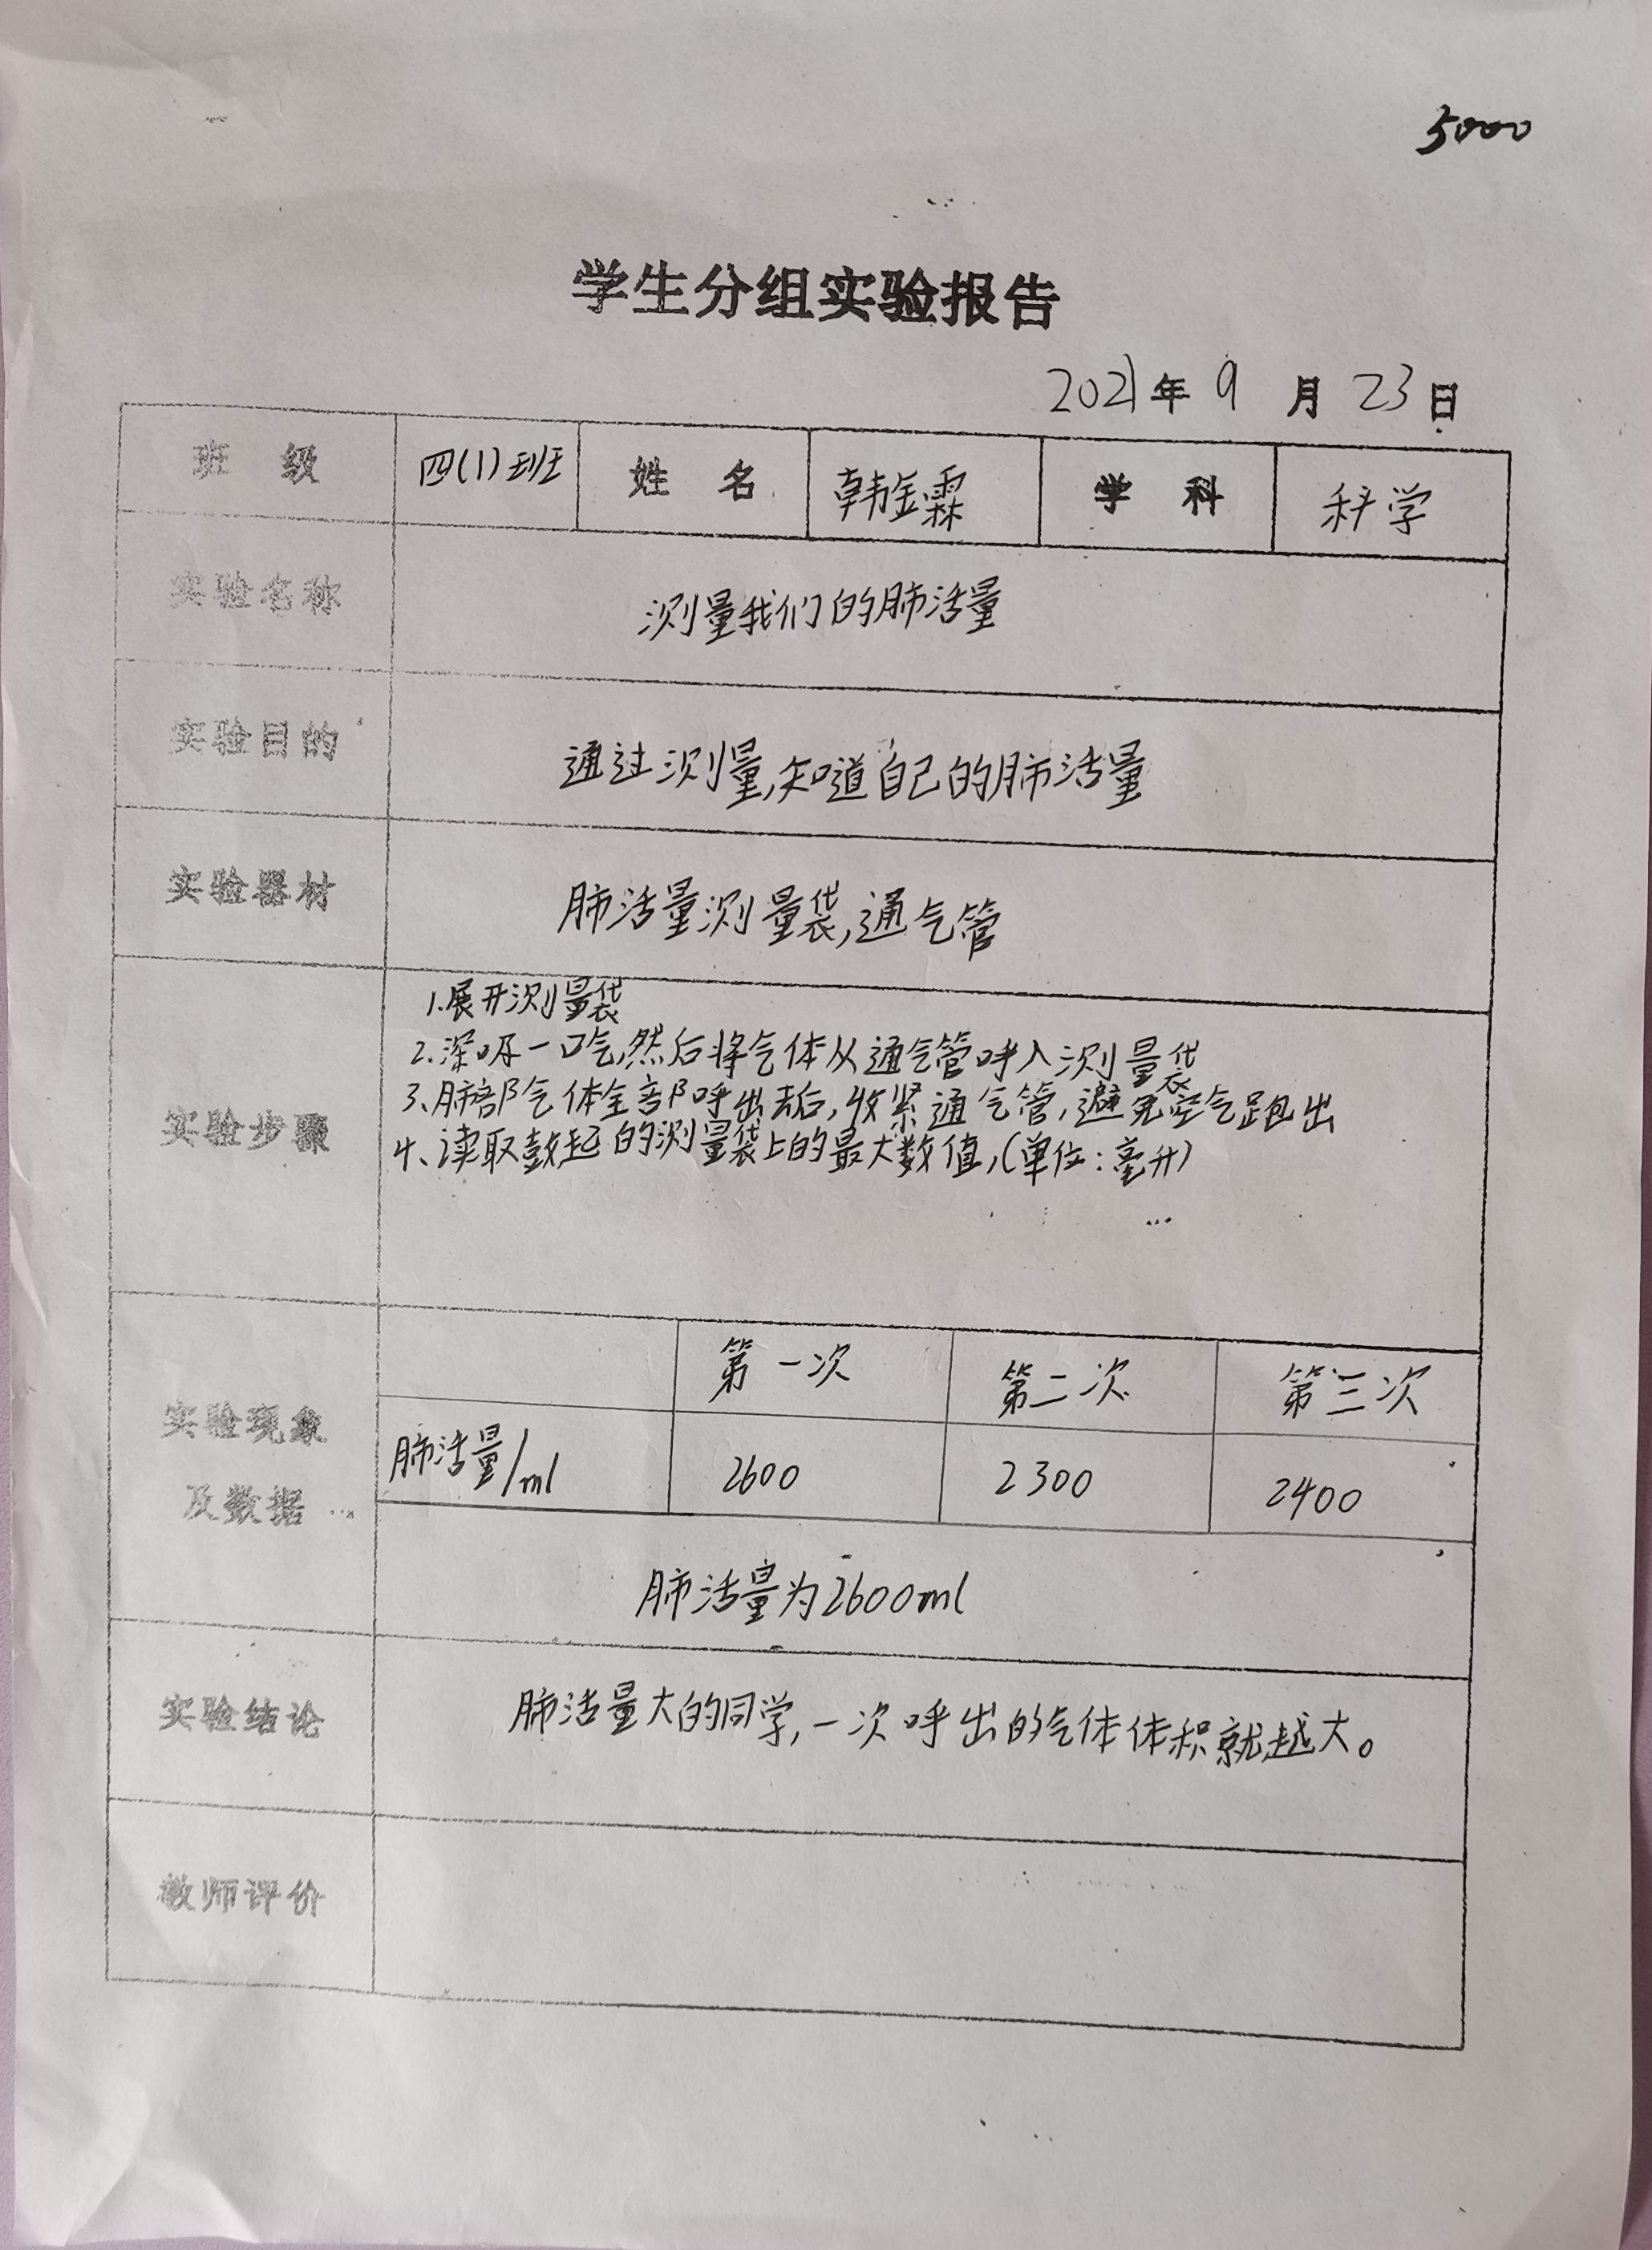 5000
学生分组实验报告
2021年9月23日
班级 四(1)班 姓名 韩金霖 学科 科学
实验名称 测量我们的肺活量
实验目的 通过测量,知道自己的肺活量
实验器材 肺活量测量袋,通气管
实验步骤
1.展开测量袋
2.深吸一口气,然后将气体从通气管呼入测量袋
3、肺部气体全部呼出去后,收紧通气管,避免空气跑出
4、读取鼓起的测量袋上的最大数值,(单位:毫升)
实验现象
及数据
第一次 第二次 第三次
肺活量/ml 2600 2300 2400
肺活量为2600ml
实验结论 肺活量大的同学,一次呼出的气体体积就越大。
教师评价